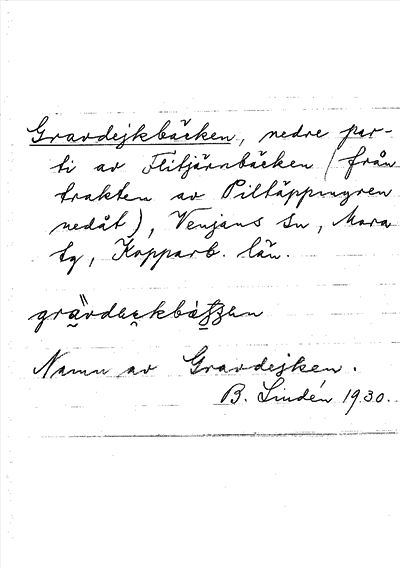 Gravdejkbäcken, nedre par-
ti av Flitjärnbäcken (från
trakten av Piltäppmyren
nedåt), Venjans sn, Mora
tg, Kopparb. län.
Namn av Gravdejken.
B. Lindén 1930.